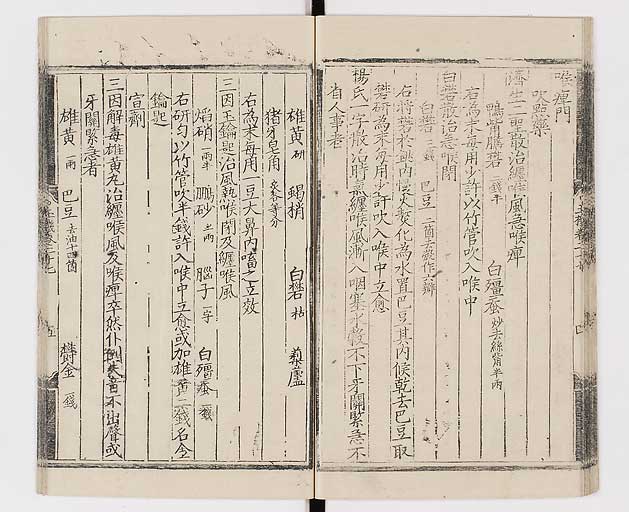 喉痺門
吹點藥
濟生二聖散治纏喉風急喉痺
鴨觜膽礬 二錢半 白殭蚕 炒去絲觜半兩
右為末每用少許以竹管吹入喉中
白礬散治急喉閉
白礬 三錢 巴豆 二箇去殼作六瓣
右將礬於銚內慢火熬化為水置巴豆其內候乾去巴豆取
礬研為末每用少許吹入喉中立愈
楊氏一字散治時氣纏喉風漸入咽塞水穀不下牙關緊急不
省人事者
雄黃 研 蝎梢 白礬 枯 藜蘆
猪牙皂角 炙各等分
右為末每用一豆大鼻內㗜之立效
三因玉鑰匙治風熱喉閉及纏喉風
焰硝 一兩半 鵬砂 半兩 腦子 一字 白殭蚕 一錢
右研勻以竹管吹半錢許入喉中立愈或加雄黃二錢名金
鑰匙
宣劑
三因解毒雄黃丸治纏喉風及喉痺卒然仆倒失音不出聲或
牙關緊急者
雄黃 一兩 巴豆 去油十四箇 欝金 一錢